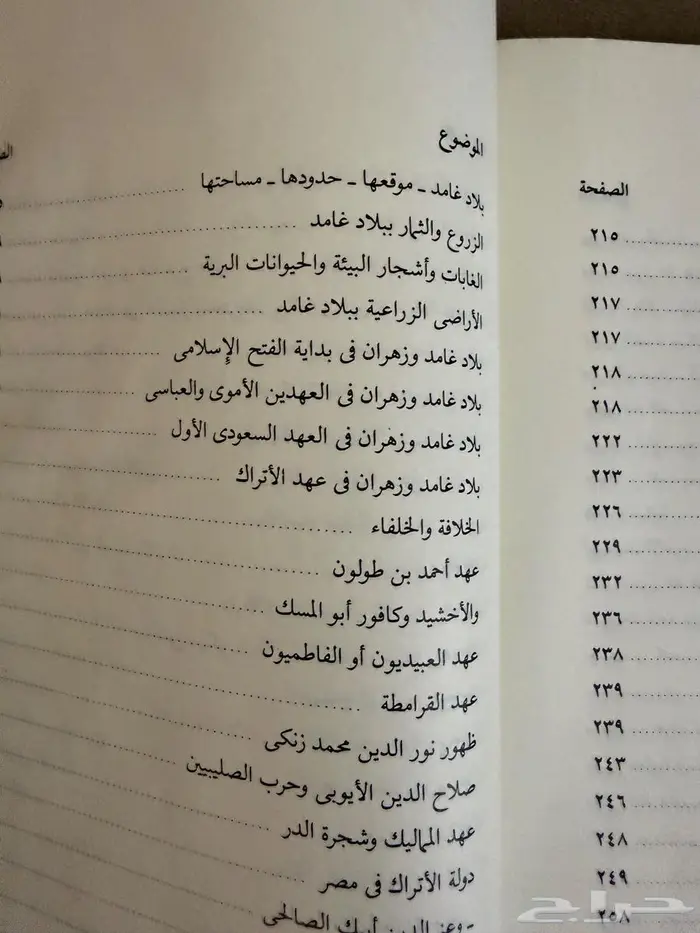 الصفحة
٢١٥
٢١٥
٢١٧
٢١٧
٢١٨
٢١٨
٢٢٢
٢٢٣
٢٢٦
٢٢٩
٢٣٢
٢٣٦
٢٣٨
٢٣٩
٢٣٩
٢٤٣
٢٤٦
٢٤٨
٢٤٩
٢٥٨
الموضوع
بلاد غامد ـ موقعها ـ حدودها ـ مساحتها
الزروع والثمار ببلاد غامد
الغابات وأشجار البيئة والحيوانات البرية
الأراضى الزراعية ببلاد غامد
بلاد غامد وزهران فى بداية الفتح الإسلامى
بلاد غامد وزهران فى العهدين الأموى والعباسى
بلاد غامد وزهران فى العهد السعودى الأول
بلاد غامد وزهران فى عهد الأتراك
الخلافة والخلفاء
عهد أحمد بن طولون
والأخشيد وكافور أبو المسك
عهد العبيديون أو الفاطميون
عهد القرامطة
ظهور نور الدين محمد زنكى
صلاح الدين الأيوبى وحرب الصليبين
عهد المماليك وشجرة الدر
دولة الأتراك فى مصر
الدين أيبك الصالحى
حراج